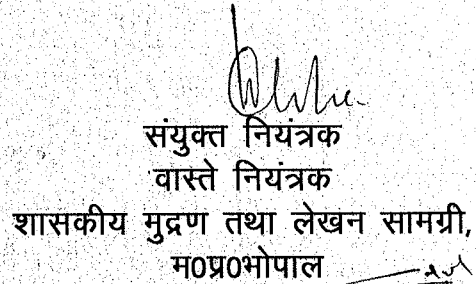 संयुक्त नियंत्रक
वास्ते नियंत्रक
शासकीय मुद्रण तथा लेखन सामग्री,
म0प्र0भोपाल